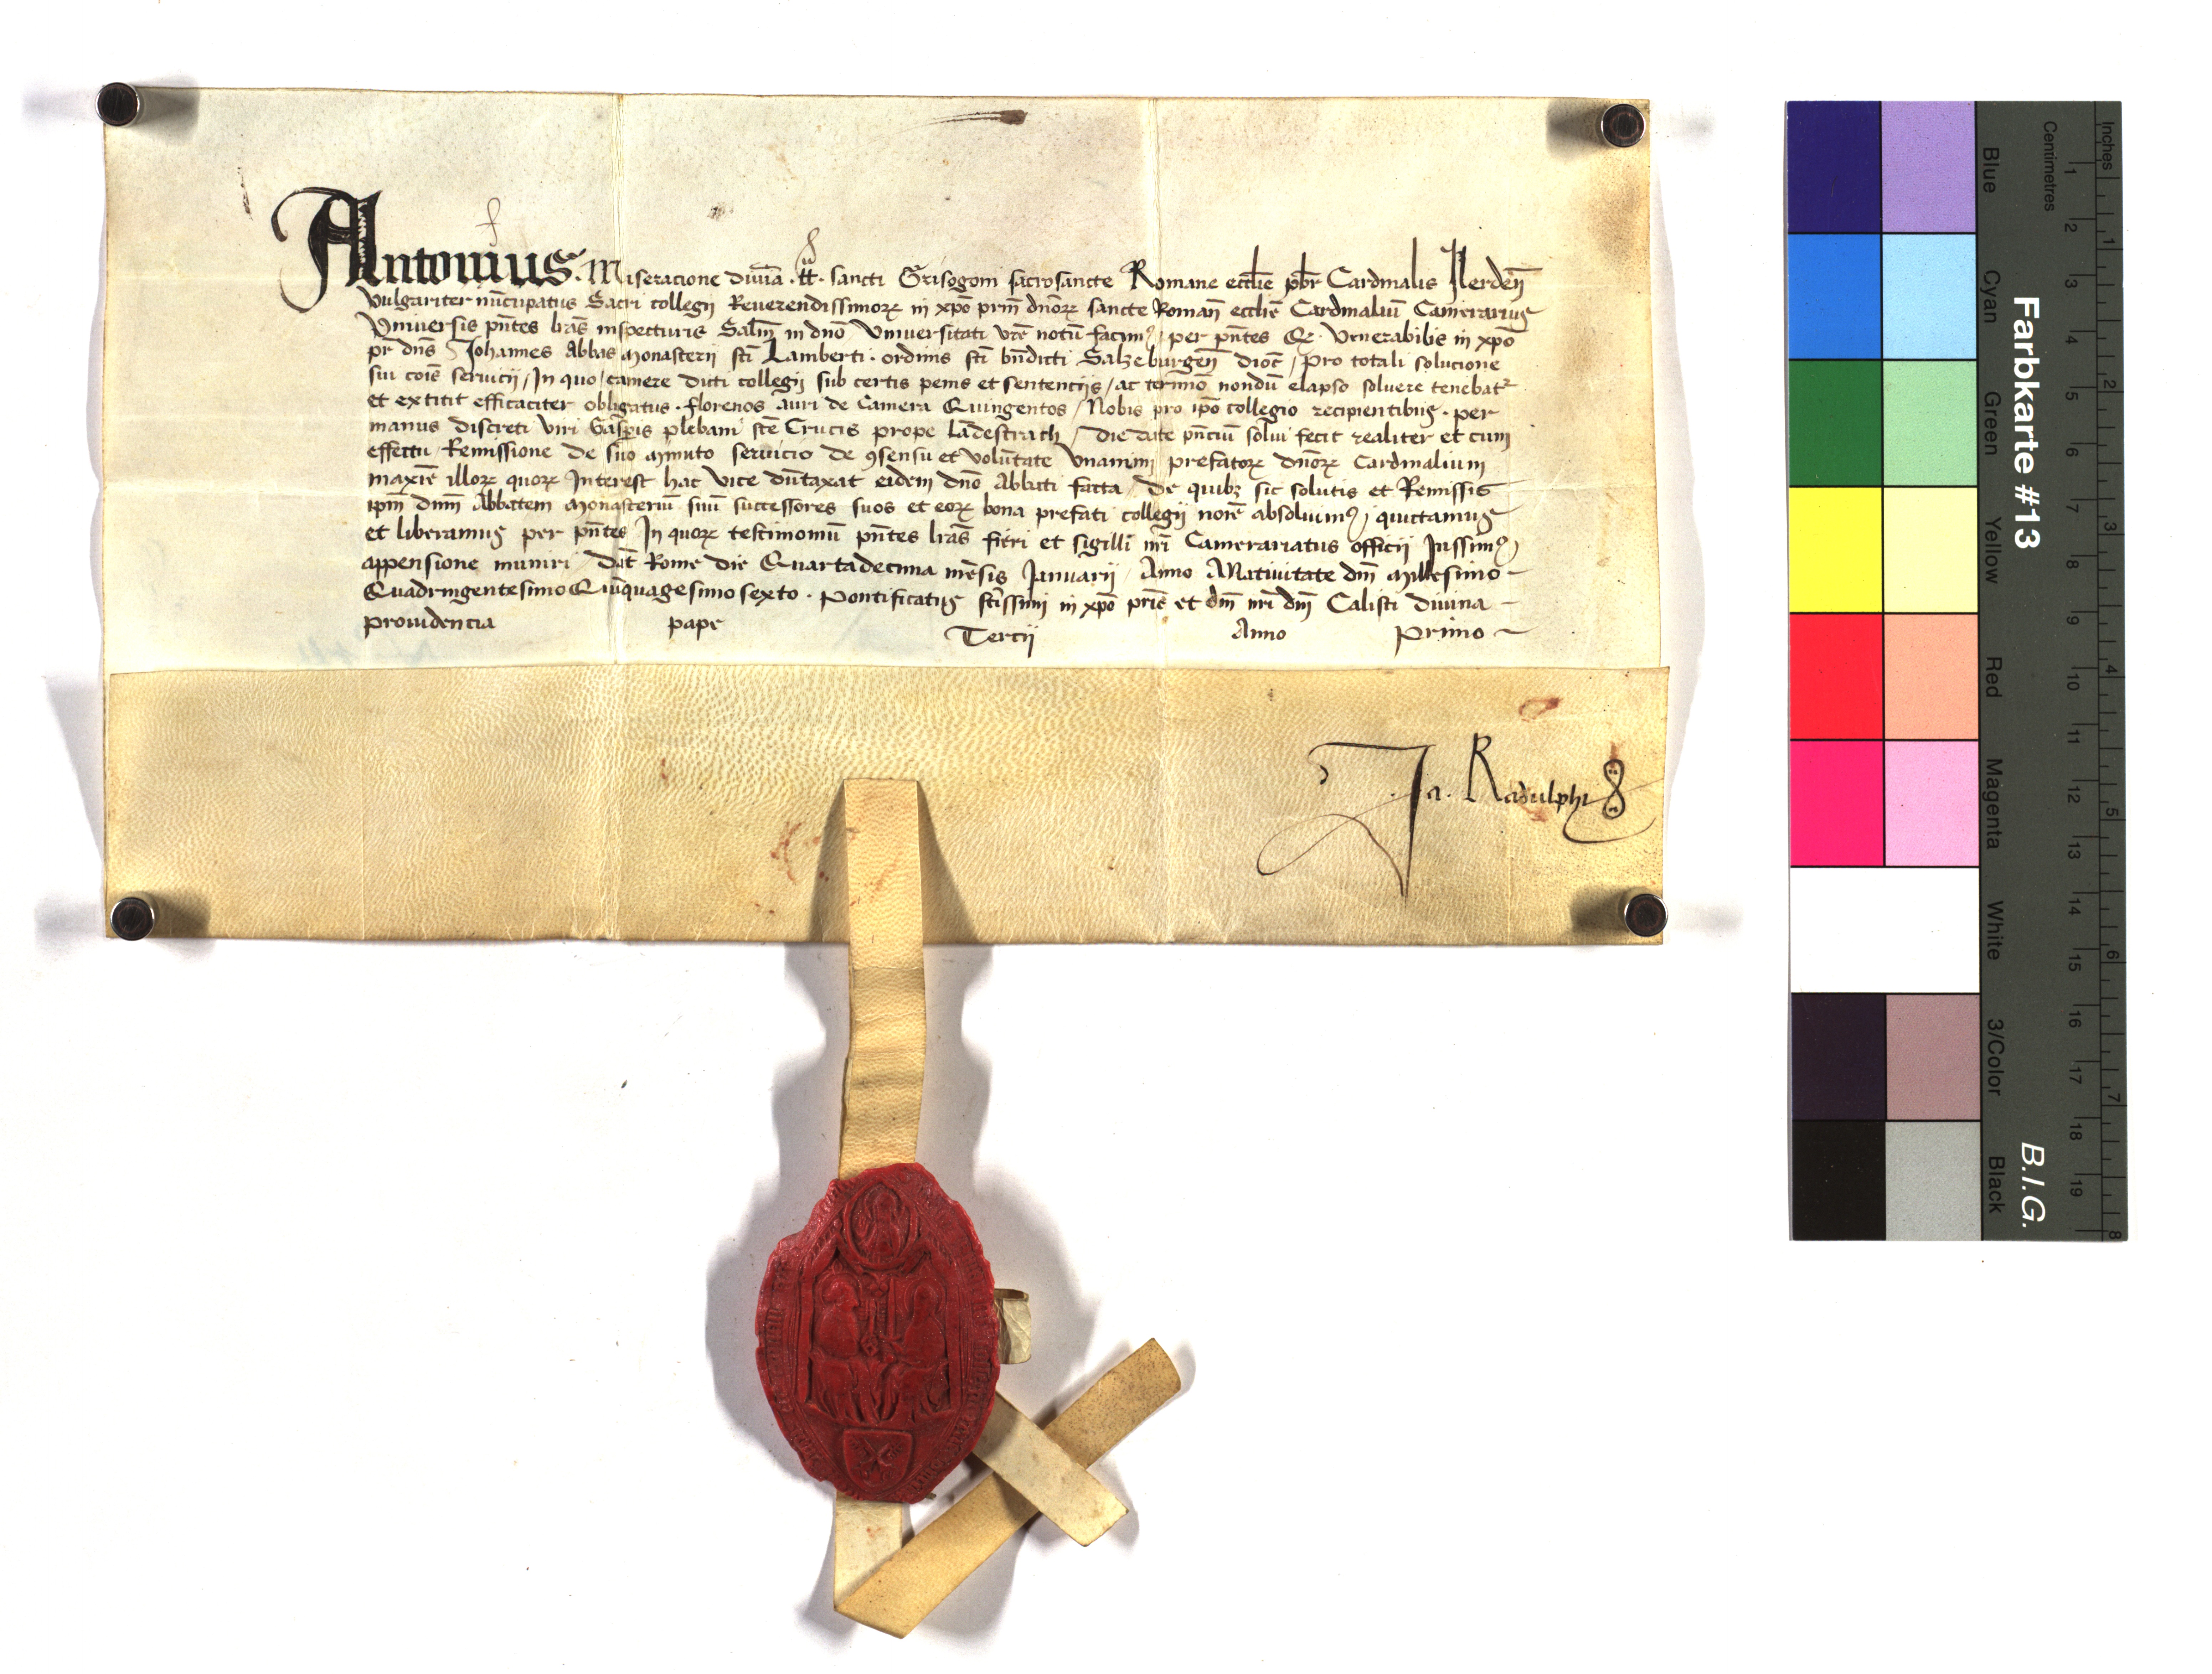 Antonius. Miseracione diuīa .tt̄. sancti Grisogoni sacrosancte Romane eccl̄ie pb̄r Cardinalis Ilerdeñ
vulgariter nūcupatus Sacri collegij Reuerendissimorꝝ in xp̄o prm̄ dn̄orꝝ sancte Romañ eccl̄ie Cardinaliū Camerarius
Vniuersis pn̄tes l̄ras inspecturis Salt̄m in dn̄o Vniuersitati vr̄e notū facimꝰ per pn̄tes Qꝫ Venerabilis in xp̄o
pr̄ dn̄s Johannes Abbas monasterij sc̄ti Lamberti. ordinis sc̄ti bn̄dicti Salzeburgeñ dioc̄ / pro totali solucione
sui cōis seruicij / In quo / camere dicti collegij sub certis penis et sentencijs / ac termīo nondū elapso soluere tenebatr
et extitit efficaciter obligatus. florenos auri de Camera Quingentos / Nobis pro ip̄o collegio recipientibus. per
manus discreti viri Gasp̄is plebani sc̄te Crucis prope Lādestrach / die date pn̄ciū solui fecit realiter et cum
effectu / Remissione de suo minuto seruicio de ꝯsensu et volūtate vnanimi prefatorꝝ dn̄orꝝ Cardinalium
maxīe illorꝝ quorꝝ Interest hac vice dūtaxat eidem dn̄o Abbati facta / de quibꝫ sic solutis et Remissis
ip̄m dn̄m Abbatem monasteriū suū successores suos et eorꝝ bona prefati collegij noīe absoluimꝰ, quictamus
et liberamus per pn̄tes In quorꝝ testimoniū pn̄tes l̄ras fieri et sigilli nr̄i Camerariatus officij Jussimꝰ
appensione muniri / Dat̄ Rome die Quartadecima mēsis Januarij / Anno A Natiuitate dn̄i millesimo
Quadringentesimo Quīquagesimosexto. Pontificatus sc̄tissimi in xp̄o pris̄ et dn̄i nr̄i dn̄i Calisti diuina
prouidencia pape Tercij Anno Primo
Ja. Radulphi
Farbkarte #13
B.I.G.
Blue
Cyan
Green
Yellow
Red
Magenta
White
3/Color
Black
Centimetres
1 2 3 4 5 6 7 8 9 10 11 12 13 14 15 16 17 18 19
Inches
1 2 3 4 5 6 7 8